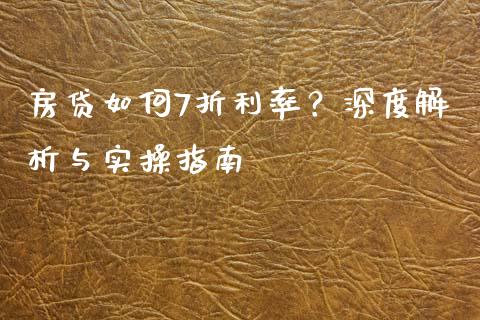 房贷如何7折利率？深度解
析与实操指南